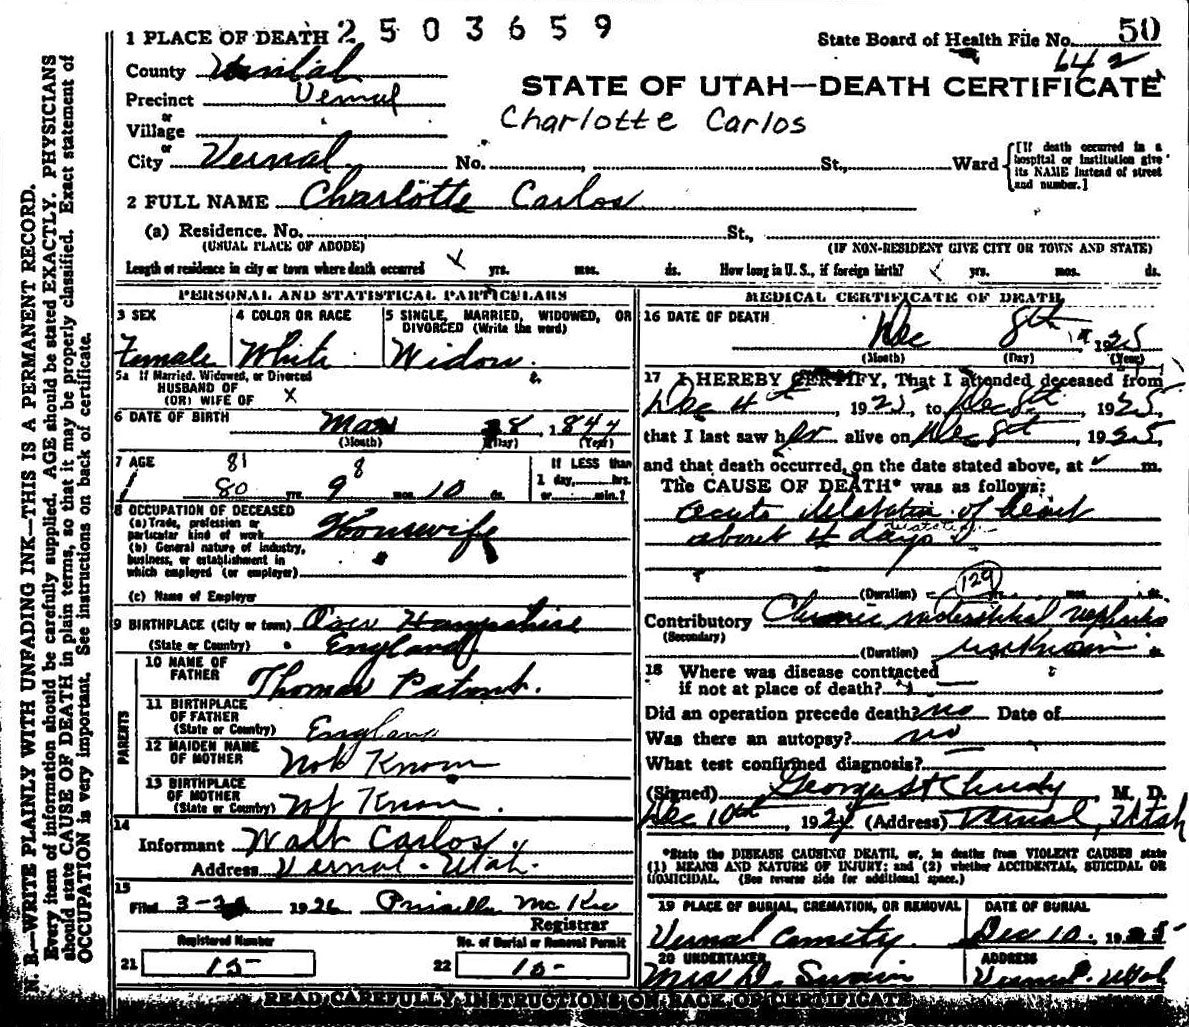 1 PLACE OF DEATH 2 5 0 3 6 5 9
State Board of Health File No. 50
642
County
Precinct Vernal
or
Village
or
City Vernal No. St., Ward
[If death occurred in a hospital or institution give its NAME instead of street and number.]
STATE OF UTAH—DEATH CERTIFICATE
Charlotte Carlos
2 FULL NAME Charlotte Carlos
(a) Residence. No. St.,
(USUAL PLACE OF ABODE) (IF NON-RESIDENT GIVE CITY OR TOWN AND STATE)
Length of residence in city or town where death occurred yrs. mos. ds. How long in U. S., if foreign birth? yrs. mos. ds.
PERSONAL AND STATISTICAL PARTICULARS
3 SEX
Female
4 COLOR OR RACE
White
5 SINGLE, MARRIED, WIDOWED, OR
DIVORCED (Write the word)
Widow.
5a If Married, Widowed, or Divorced
HUSBAND OF
(OR) WIFE OF X
6 DATE OF BIRTH 1844
(Month) (Day) (Year)
7 AGE 81 8
80 yrs. 9 mos. 10 ds.
If LESS than
1 day, hrs.
or min.?
8 OCCUPATION OF DECEASED
(a) Trade, profession or
particular kind of work Housewife
(b) General nature of industry,
business, or establishment in
which employed (or employer)
(c) Name of Employer
9 BIRTHPLACE (City or town) Hampshire
(State or Country) England
PARENTS
10 NAME OF
FATHER Thomas
11 BIRTHPLACE
OF FATHER
(State or Country) England
12 MAIDEN NAME
OF MOTHER Not Known
13 BIRTHPLACE
OF MOTHER
(State or Country) Not Known
14
Informant Walt Carlos.
Address Vernal - Utah.
15
Filed 1926 Priscilla McKee
Registrar
Registered Number
21 15-
No. of Burial or Removal Permit
22 15-
MEDICAL CERTIFICATE OF DEATH
16 DATE OF DEATH Dec 8th 1925
(Month) (Day) (Year)
17 I HEREBY CERTIFY, That I attended deceased from
Dec 4th, 1925, to Dec 8th, 1925,
that I last saw her alive on Dec 8th, 1925,
and that death occurred, on the date stated above, at m.
The CAUSE OF DEATH* was as follows:
Acute dilatation of heart
about 4 days
(Duration) 129 mos. ds.
Contributory Chronic interstitial nephritis
(Secondary)
(Duration) unknown ds.
18 Where was disease contracted
if not at place of death?
Did an operation precede death? no Date of
Was there an autopsy? no
What test confirmed diagnosis?
(Signed) M. D.
Dec 10th, 192 (Address) Vernal, Utah
*State the DISEASE CAUSING DEATH, or, in deaths from VIOLENT CAUSES state
(1) MEANS AND NATURE OF INJURY; and (2) whether ACCIDENTAL, SUICIDAL OR
HOMICIDAL. (See reverse side for additional space.)
19 PLACE OF BURIAL, CREMATION, OR REMOVAL
Vernal Cemetery.
DATE OF BURIAL
Dec 10. 1925
20 UNDERTAKER
Mrs D. Swain
ADDRESS
Vernal Utah
READ CAREFULLY INSTRUCTIONS ON BACK OF CERTIFICATE
N. B.—WRITE PLAINLY WITH UNFADING INK—THIS IS A PERMANENT RECORD.
Every item of information should be carefully supplied. AGE should be stated EXACTLY. PHYSICIANS
should state CAUSE OF DEATH in plain terms, so that it may be properly classified. Exact statement of
OCCUPATION is very important. See instructions on back of certificate.